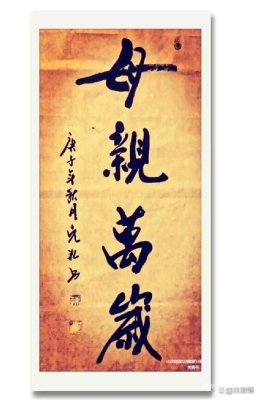 母親萬歲
庚子年秋月